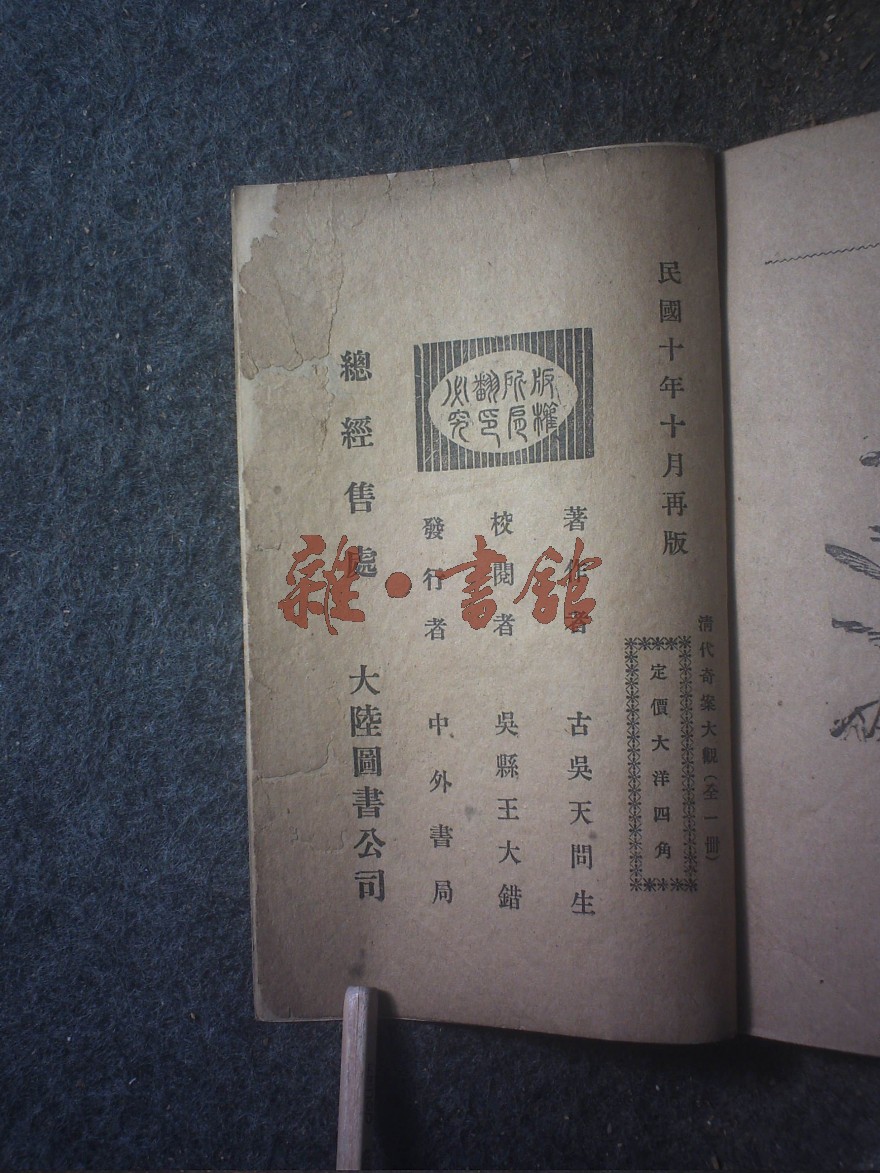 民國十年十月再版
清代奇案大觀(全一冊)
定價大洋四角
版權所有翻印必究
著作者 古吳天問生
校閱者 吳縣王大錯
發行者 中外書局
總經售處 大陸圖書公司
雜·書館